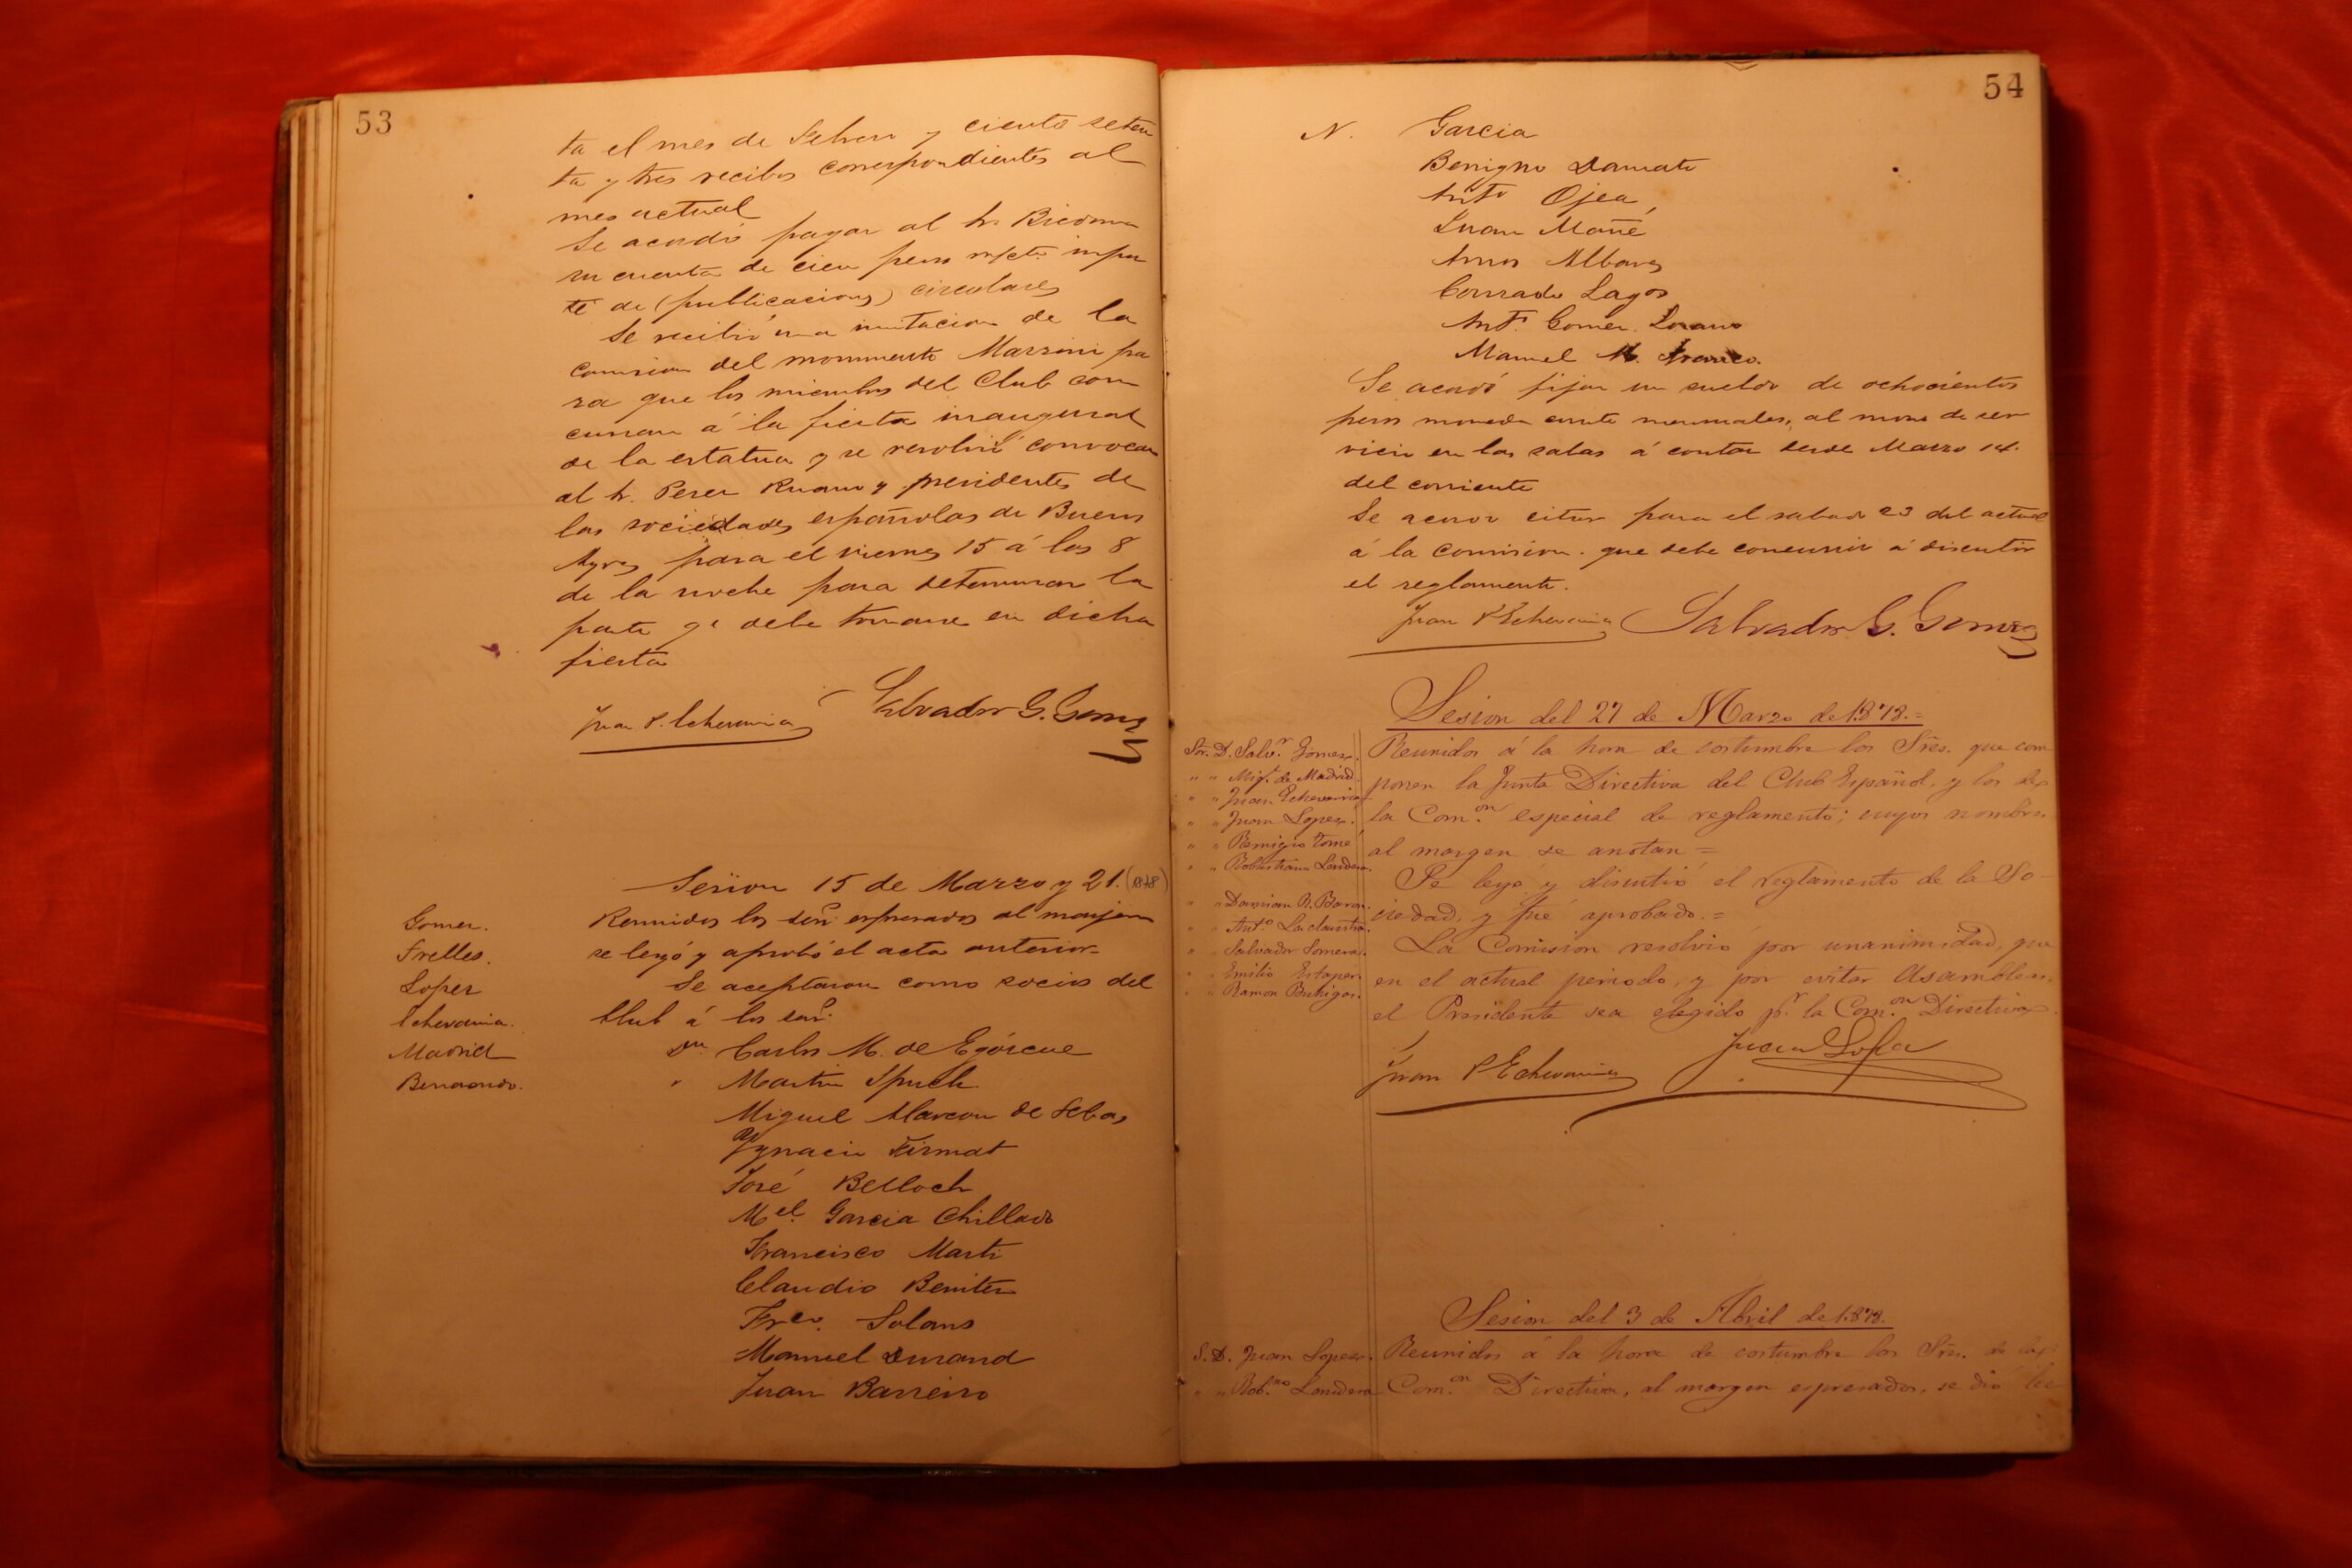 53
ta el mes de Febrero y ciento seten
ta y tres recibos correspondientes al
mes actual
Se acordó pagar al Sr. Biedma
su cuenta de cien pesos m/cte impor
te de (publicaciones) circulares
Se recibió una invitacion de la
comision del monumento Mazzini pa
ra que los miembros del Club con
curran á la fiesta inaugural
de la estatua y se resolvió convocar
al Sr. Perez Ruano y presidentes de
las sociedades españolas de Buenos
Ayres para el viernes 15 á las 8
de la noche para determinar la
parte qe debe tomarse en dicha
fiesta
Juan P. Echevarria Salvador G. Gomez
Sesion 15 de Marzo y 21. (1878)
Gomez. Reunidos los señs. espresados al marjen
Frelles. se leyó y aprobó el acta anterior
Lopez Se aceptaron como socios del
Echevarria. Club á los señs.
Madrid Dn. Carlos M. de Egózcue
Benaondo. " Martin Spuch
Miguel Alarcon de
Ygnacio Firmat
José Belloch
Mel. Garcia Chillado
Francisco Marti
Claudio Benitez
Frco. Solans
Manuel Durand
Juan Barreiro
54
N. Garcia
Benigno Damato
Anto Ojea
Juan Mañé
Amos Albarez
Conrado Lagos
Ant. Gomez
Manuel M. Franco.
Se acordó fijar un sueldo de ochocientos
pesos moneda corrte mensuales, al mozo de ser
vicio en las salas á contar desde Marzo 1º.
del corriente
Se acordó citar para el sabado 23 del actual
á la comision que debe concurrir á discutir
el reglamento.
Juan P Echevarria Salvador G. Gomez
Sesion del 27 de Marzo de 1.878.=
Sr. D. Salv.r Gomez. Reunidos á la hora de costumbre los Sres. que com
" " Mig.l de Madrid. ponen la Junta Directiva del Club Español, y los de
" " Juan Echevarria
" " Juan Lopez. la Com.on especial de reglamento; cuyos nombres
" " Remigio Tomé al margen se anotan =
" " Robustiano Landera. Se leyó y discutió el reglamento de la So-
" " Damian R. Baron. ciedad, y fué aprobado.=
" " Ant.o La claustra.
" " Salvador Somera. La Comision resolvió por unanimidad, que
" " Emilio Estaper. en el actual periodo, y por evitar Asambleas.
" " Ramon Buhigas. el Presidente sea elegido p.r la Com.on Directiva.
Juan P Echevarria Juan Lopez
Sesion del 3 de Abril de 1.878.
S. D. Juan Lopez. Reunidos á la hora de costumbre los Sres. de la
" " Rob.no Landera Com.on Directiva, al margen espresados, se dió lec